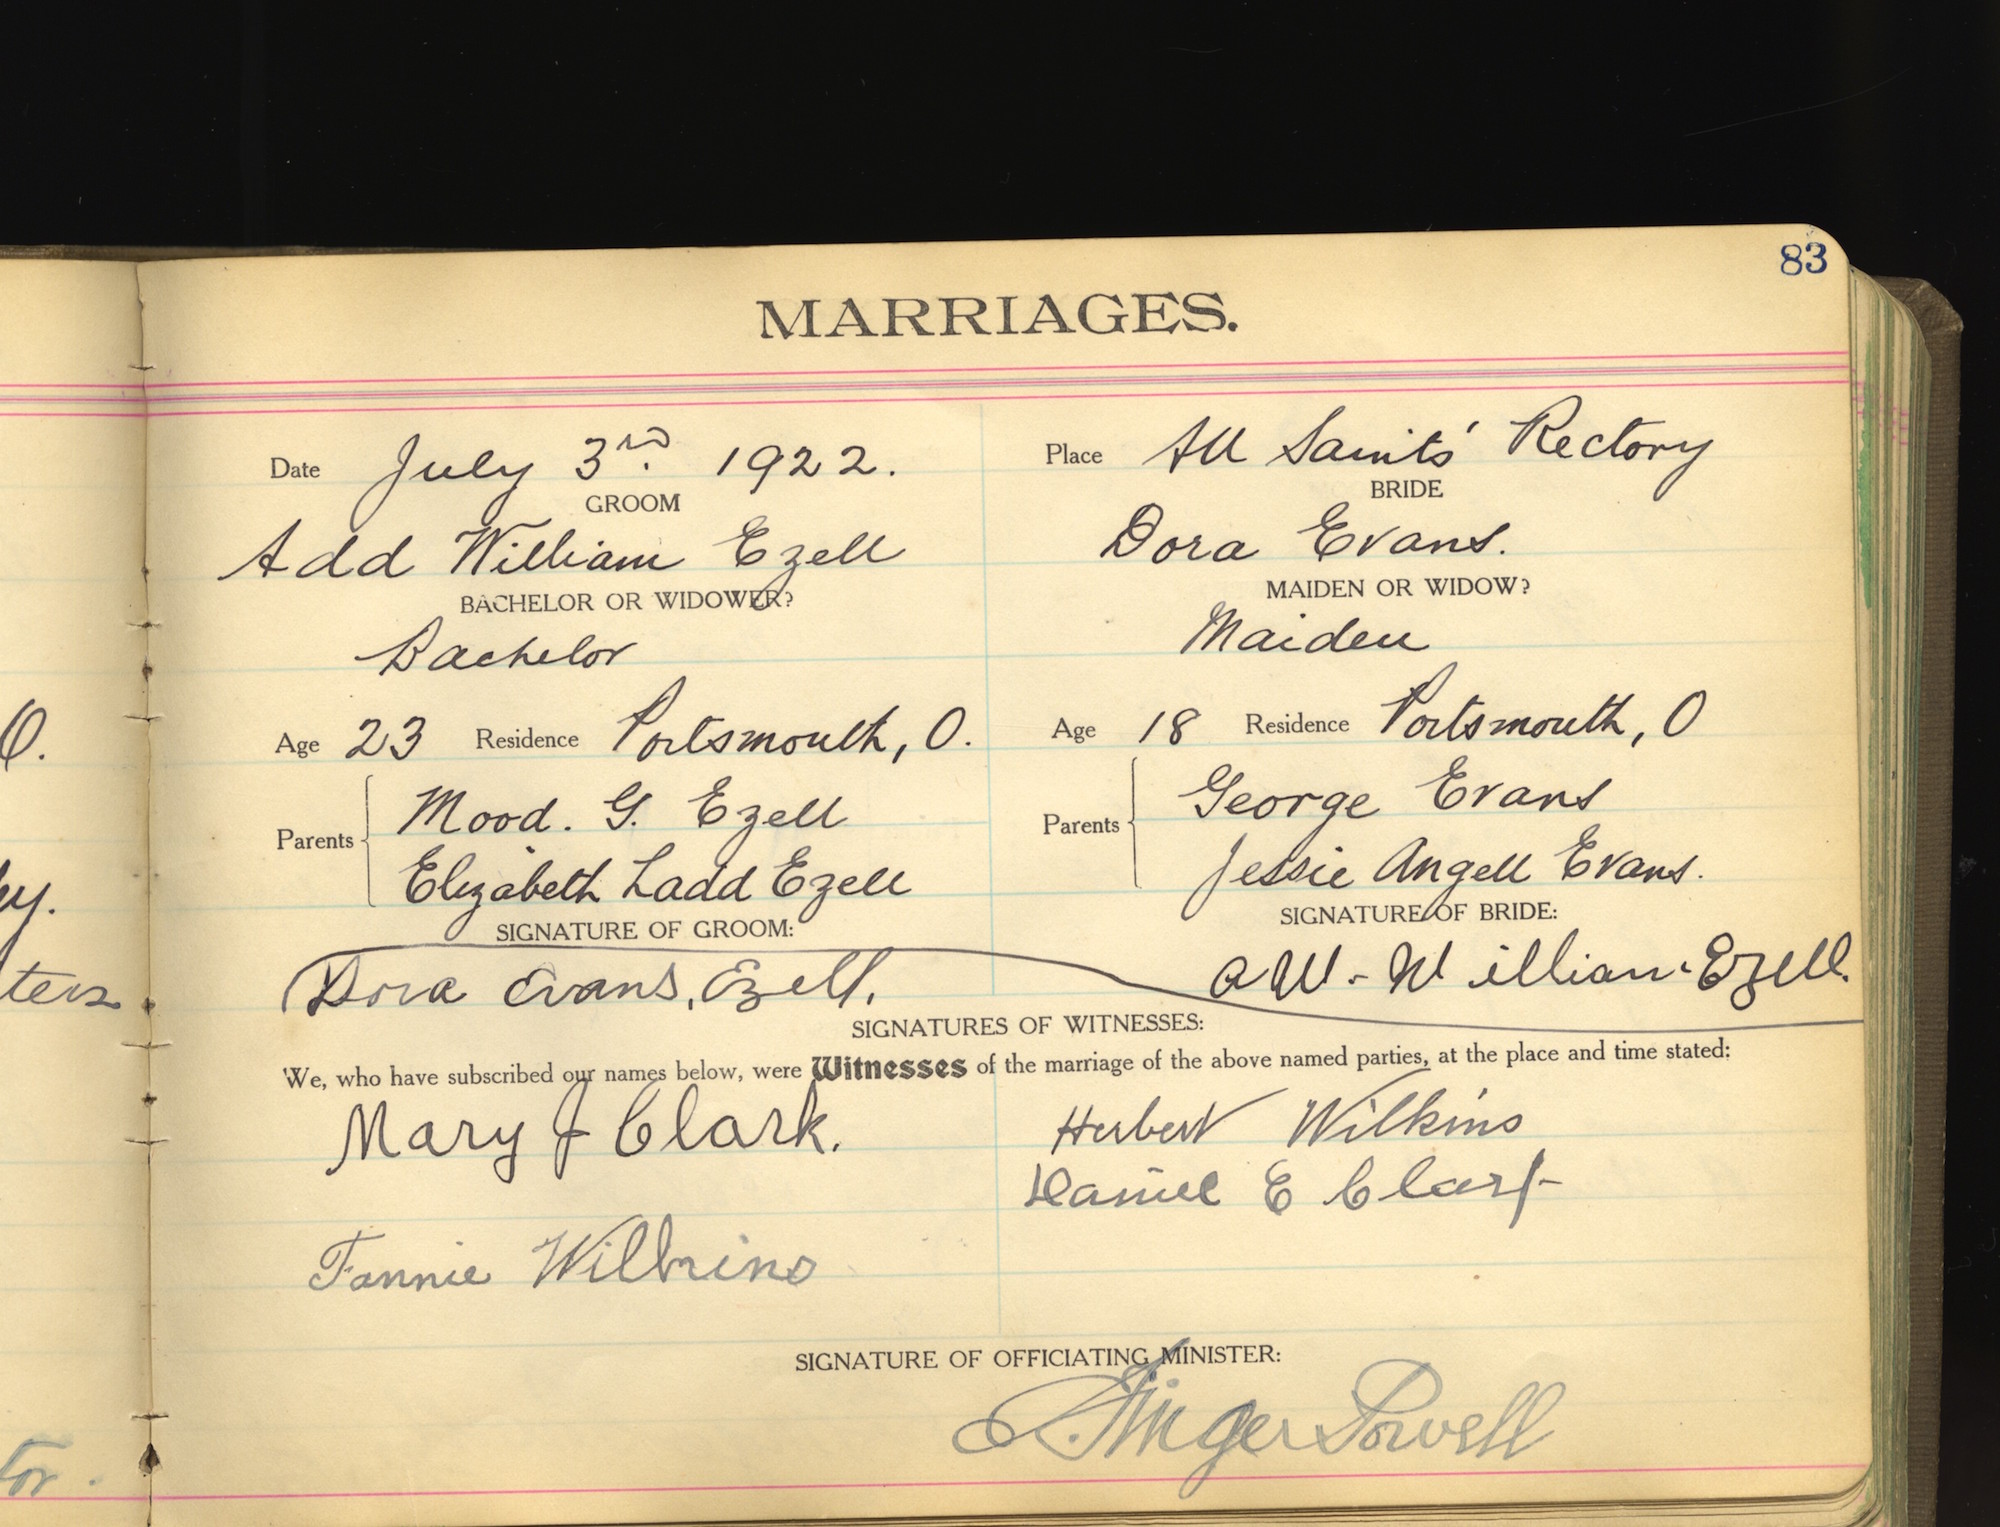 83
MARRIAGES.
Date July 3rd. 1922.
Place All Saints' Rectory
GROOM
BRIDE
Add William Ezell
Dora Evans.
BACHELOR OR WIDOWER?
MAIDEN OR WIDOW?
Bachelor
Maiden
Age 23 Residence Portsmouth, O.
Age 18 Residence Portsmouth, O
Parents
Mood. G. Ezell
Elizabeth Ladd Ezell
Parents
George Evans
Jessie Angell Evans.
SIGNATURE OF GROOM:
SIGNATURE OF BRIDE:
Dora Evans, Ezell.
William Ezell.
SIGNATURES OF WITNESSES:
We, who have subscribed our names below, were Witnesses of the marriage of the above named parties, at the place and time stated:
Mary J Clark.
Herbert Wilkins
Daniel E Clark
Fannie Wilkins
SIGNATURE OF OFFICIATING MINISTER:
Powell
O.
y.
ters
tor.